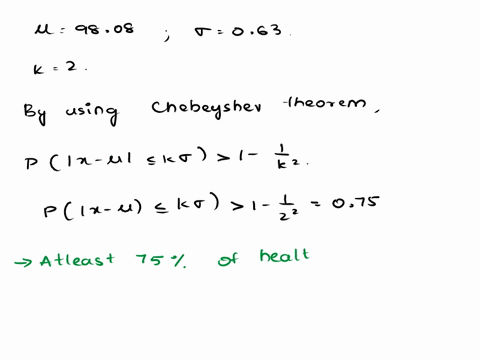 μ = 98.08 ; σ = 0.63.
k = 2.
By using Chebeyshev theorem,
P(|x-μ| ≤ kσ) > 1 - 1/k².
P(|x-μ) ≤ kσ) > 1 - 1/2² = 0.75
→ Atleast 75% of healt